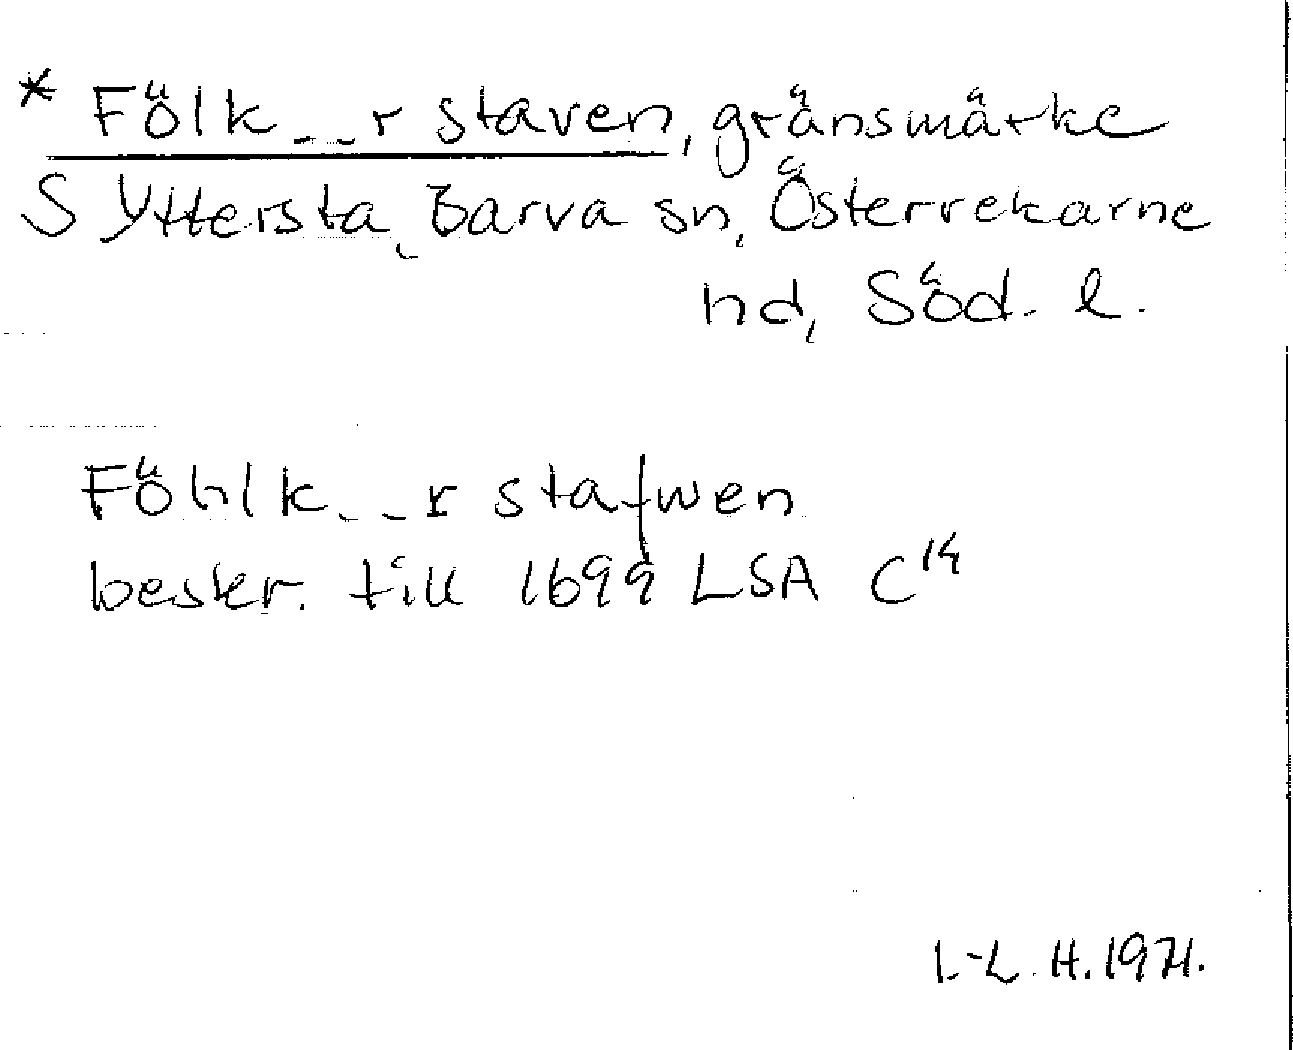 * Fölk _ _ r staven, gränsmärke
S Yttersta, Barva sn, Österrekarne
hd, Söd. l.
Föhlk _ _ r stafwen
beskr. till 1699 LSA C14
I.-L. H. 1971.